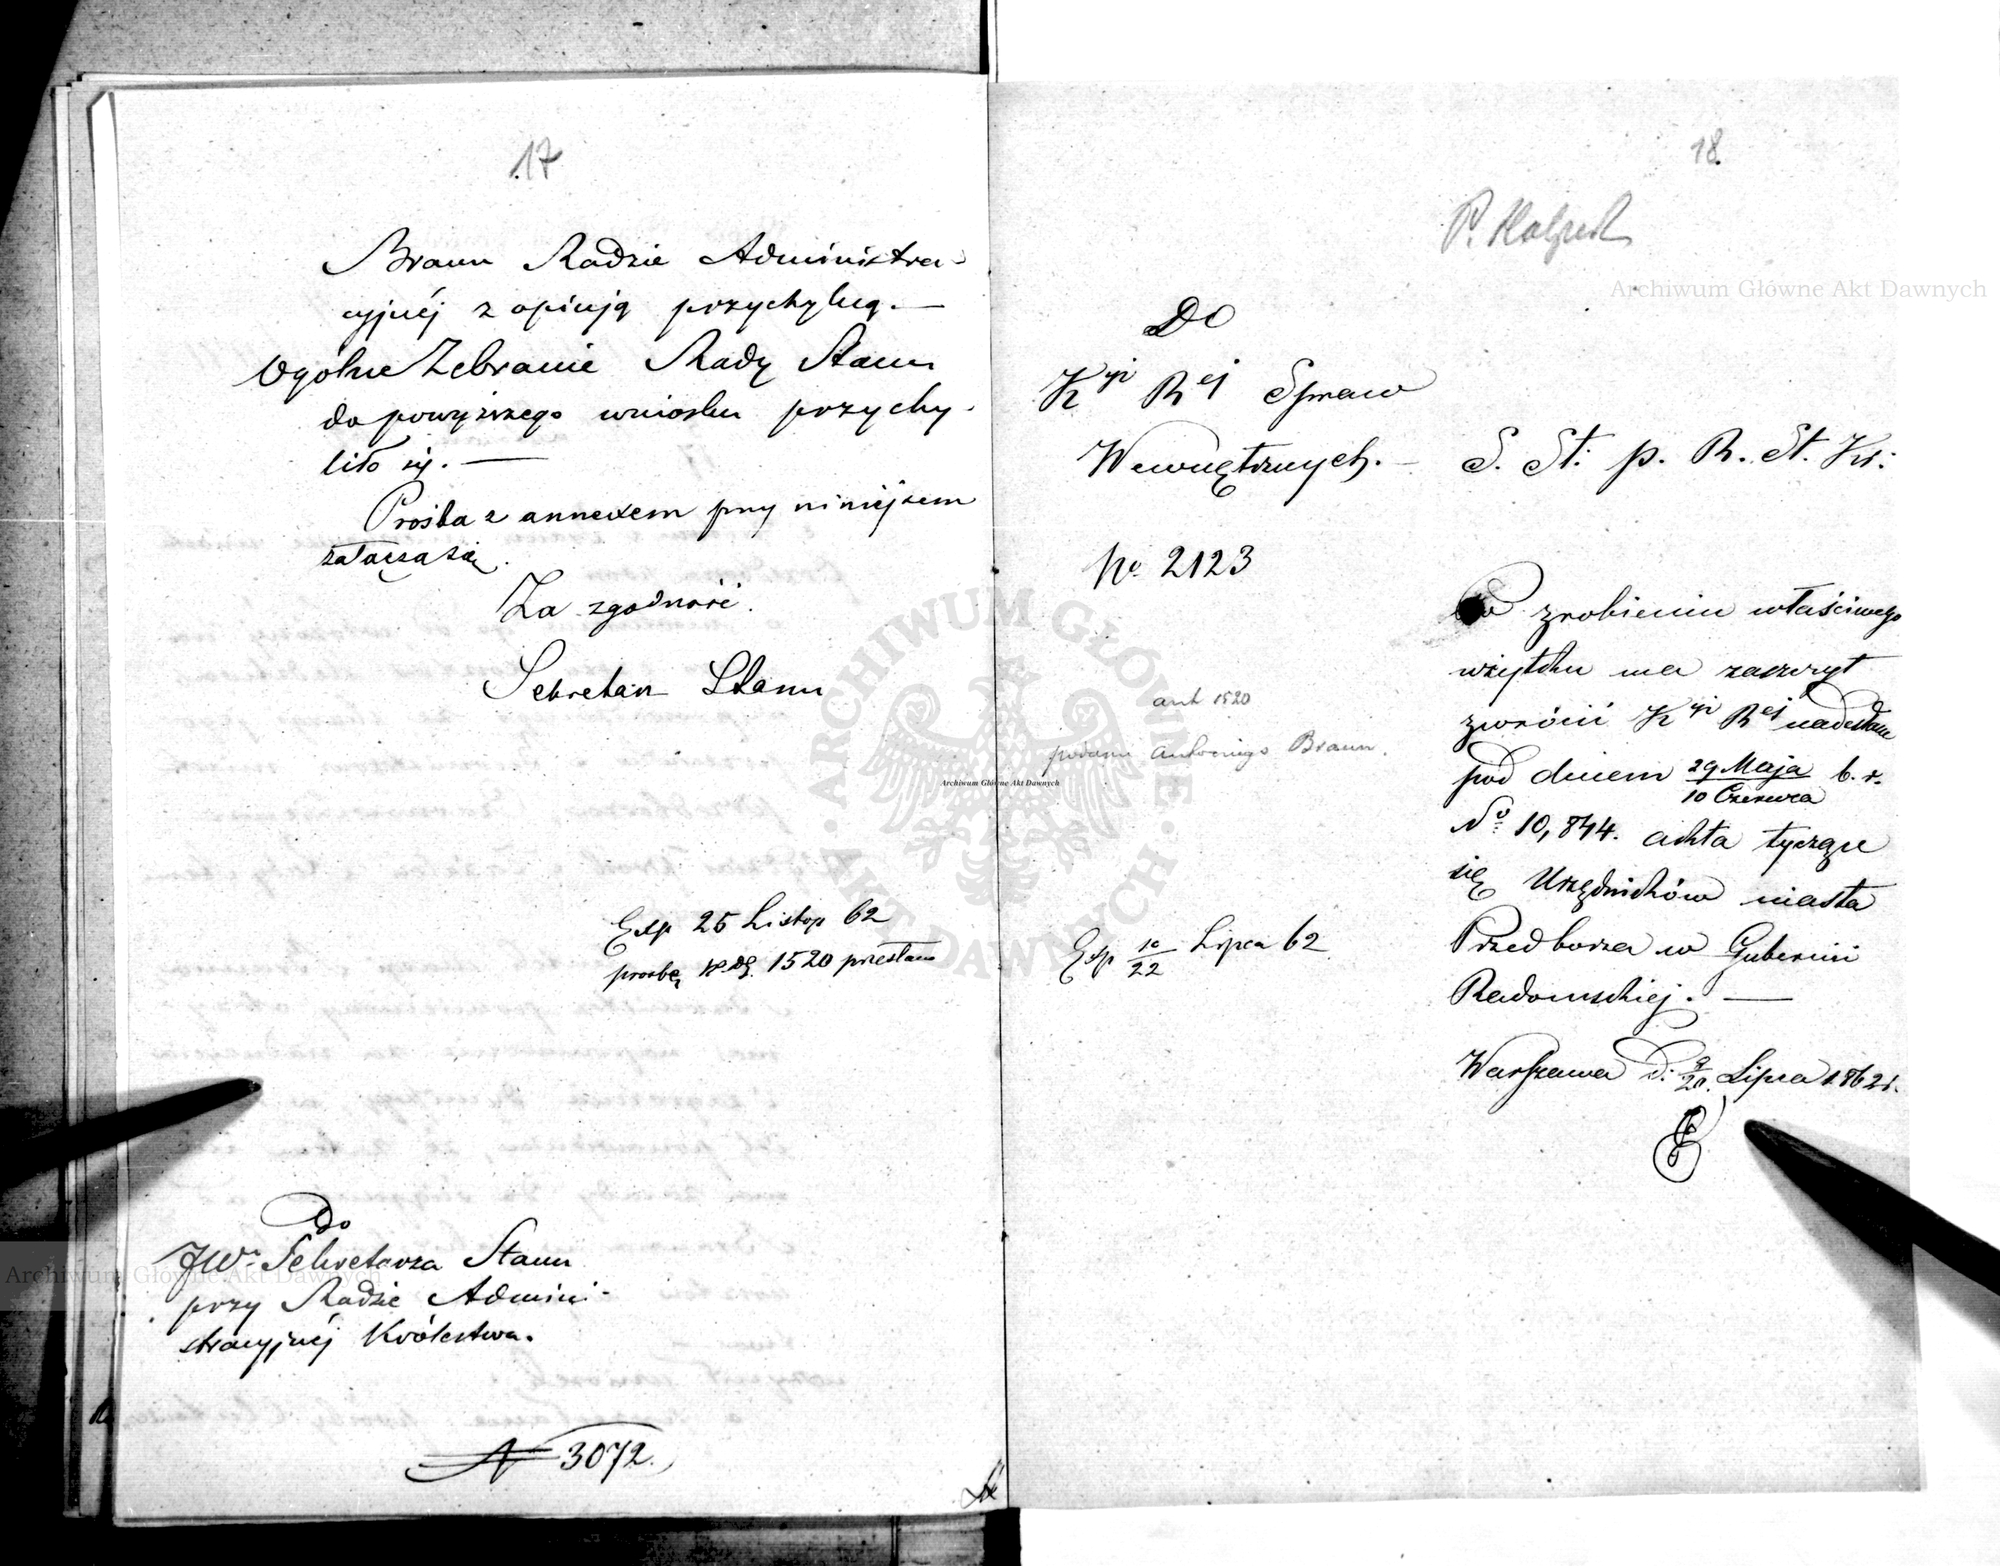 17
Braun Radzie Administra-
cyjnéj z opinją przychylną. —
Ogólne Zebranie Rady Stanu
do powyższego wniosku przychy-
liło się. —
Prośba z annexem przy niniejszem
załącza się.
Za zgodność.
Sekretarz Stanu
Exp 25 Listop 62
prosbę 1520 przesłano
Do
JW. Sekretarza Stanu
przy Radzie Admini-
stracyjnéj Królestwa.
N 3072.
18.
P.
Do
Kyi Rej Spraw
Wewnętrznych. —
No. 2123
ant 1520
podanu Antoniego Braun.
Exp 10/22 Lipca 62
S. St. p. R. St. Kr:
Po zrobieniu właściwego
użytku ma zaszczyt
zwrócić Kyi Rej nadesłane
pod dniem 29 Maja/10 Czerwca b. r.
No 10,844. akta tyczące
się Urzędników miasta
Przedborza w Gubernii
Radomskiej. —
Warszawa d. 8/20. Lipca 1862 r.
ARCHIWUM GŁÓWNE AKT DAWNYCH
Archiwum Główne Akt Dawnych
Archiwum Główne Akt Dawnych
Archiwum Główne Akt Dawnych